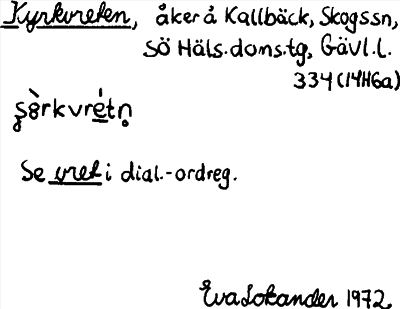 Kyrkvreten, åker å Kallbäck, Skogs sn,
SÖ Häls. doms.tg, Gävl. L.
334 (14H6a)
ʂö̀rkvrétn̥
Se vret i dial.-ordreg.
Eva Lokander 1972